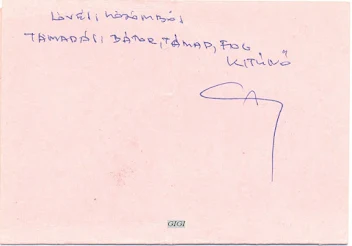 LÖVÉS: KÖZÖMBÖS
TÁMADÁS: BÁTOR, TÁMAD, FOG
KITŰNŐ
GIGI